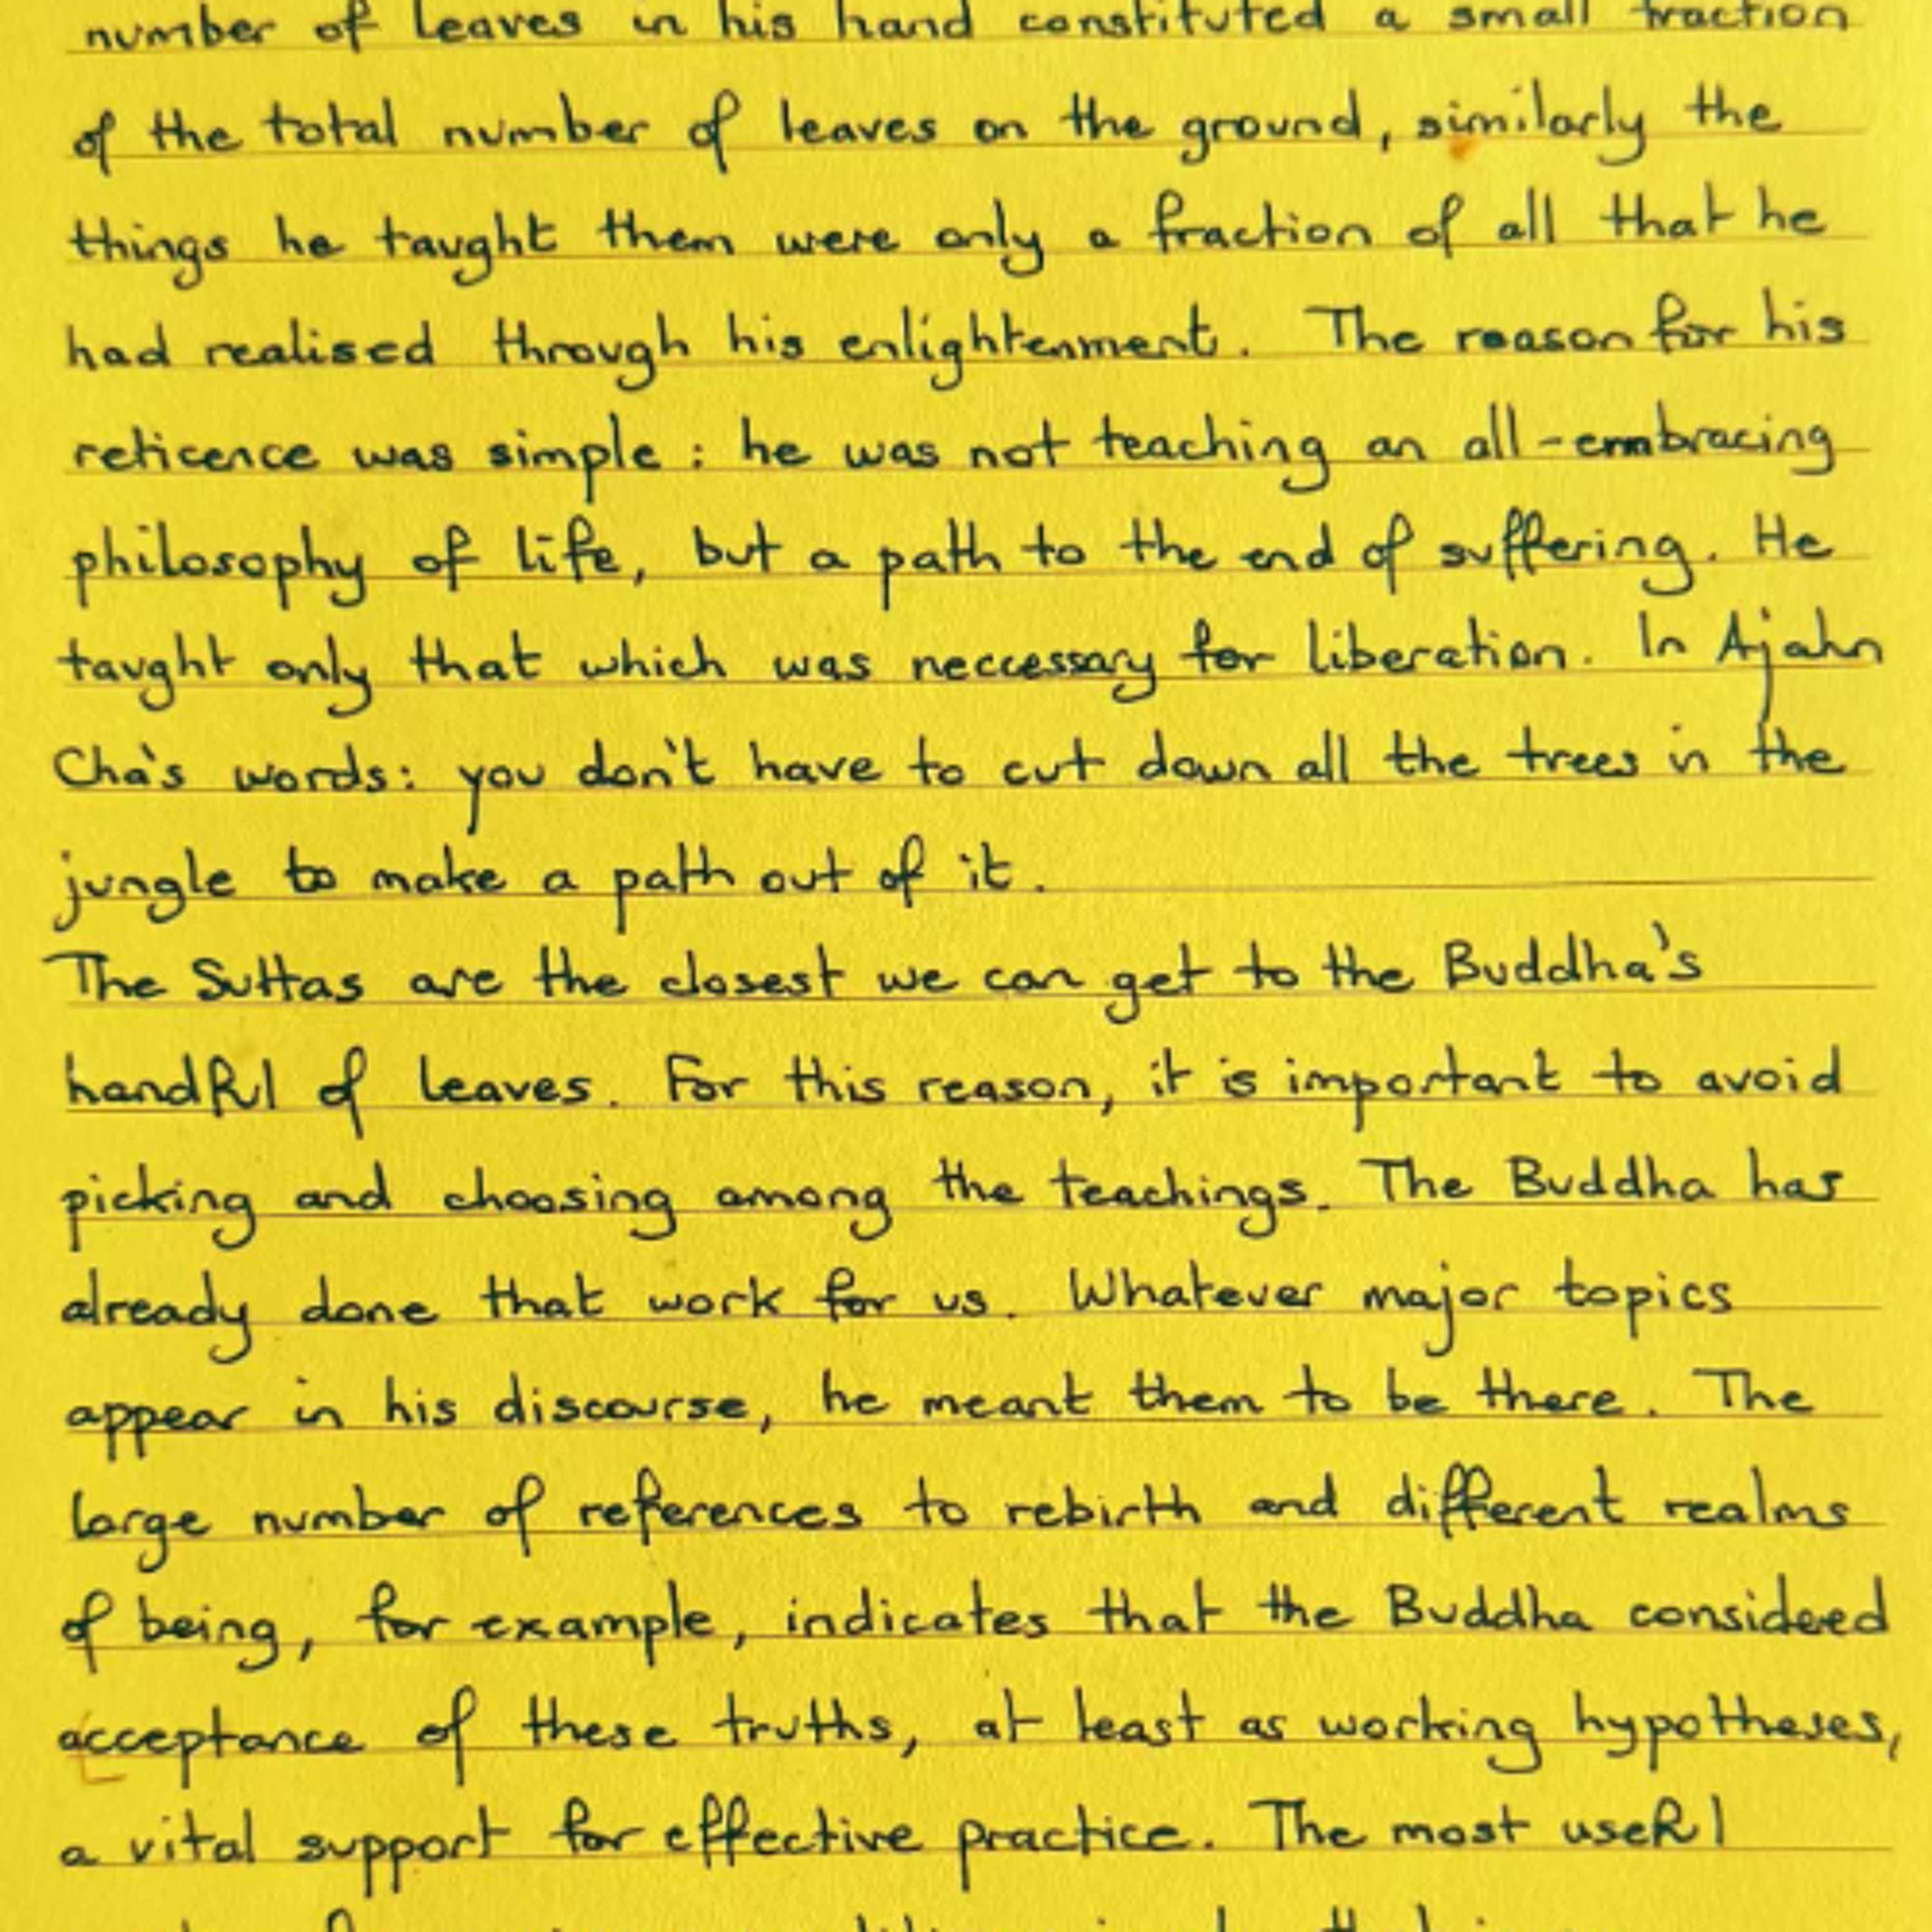 number of leaves in his hand constituted a small fraction
of the total number of leaves on the ground, similarly the
things he taught them were only a fraction of all that he
had realised through his enlightenment. The reason for his
reticence was simple: he was not teaching an all-embracing
philosophy of life, but a path to the end of suffering. He
taught only that which was neccessary for liberation. In Ajahn
Cha's words: you don't have to cut down all the trees in the
jungle to make a path out of it.
The Suttas are the closest we can get to the Buddha's
handful of leaves. For this reason, it is important to avoid
picking and choosing among the teachings. The Buddha has
already done that work for us. Whatever major topics
appear in his discourse, he meant them to be there. The
large number of references to rebirth and different realms
of being, for example, indicates that the Buddha considered
acceptance of these truths, at least as working hypotheses,
a vital support for effective practice. The most useful